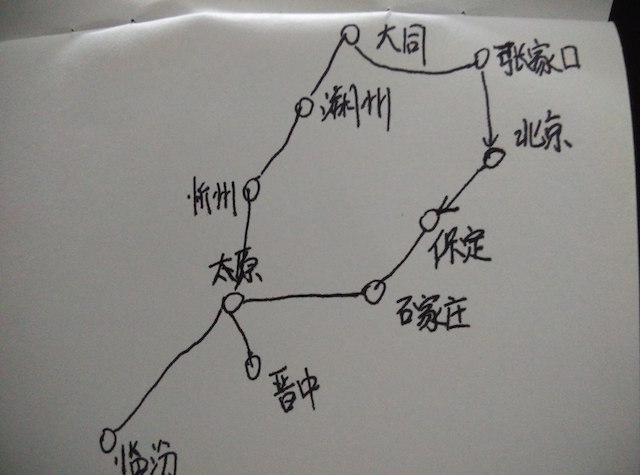 大同
张家口
朔州
北京
忻州
保定
太原
石家庄
晋中
临汾